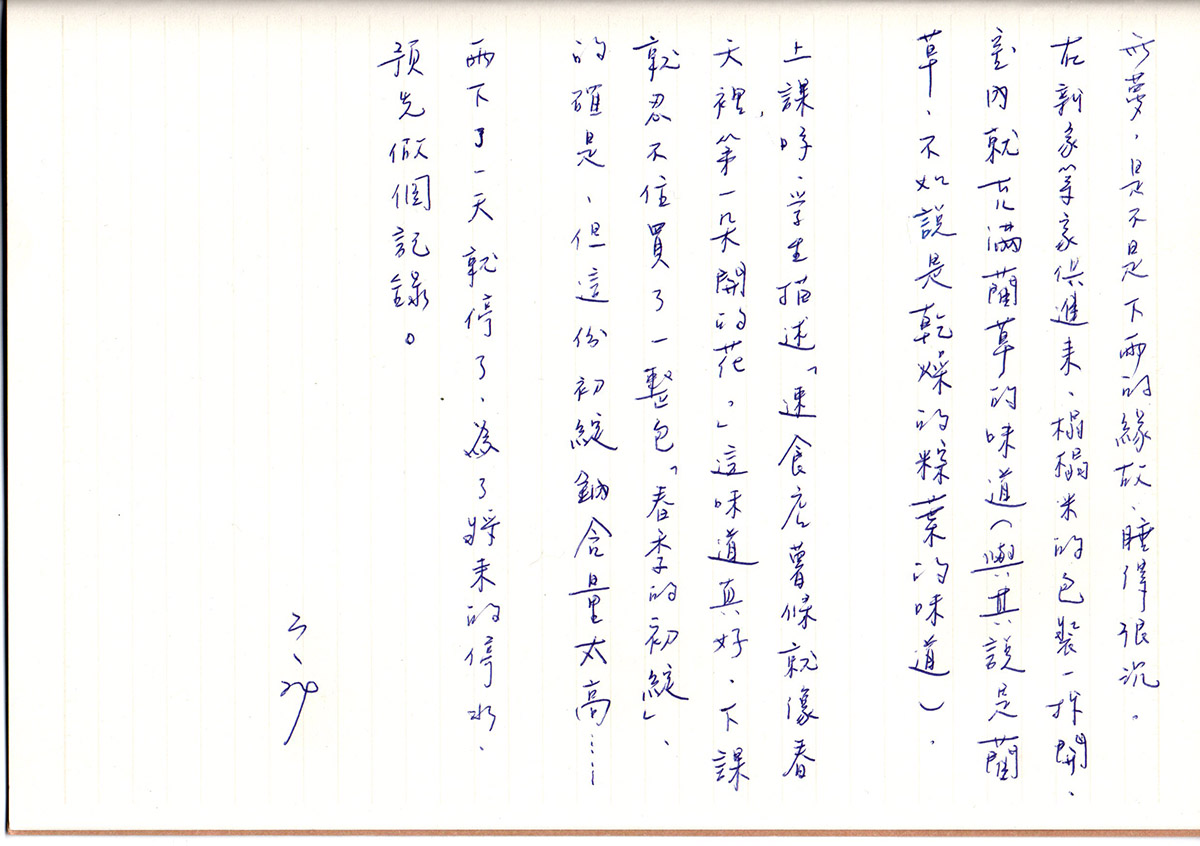 所夢，是不是下雨的緣故，睡得很沉。
在新家等家俱進來、榻榻米的包裝一拆開，
室內就充滿藺草的味道（與其說是藺
草，不如說是乾燥的粽葉的味道）。
上課時，学生描述「速食店薯條就像春
天裡，第一朵開的花。」這味道真好，下課
就忍不住買了一整包「春季的初綻」，
的確是，但這份初綻鈉含量太高……
雨下了一天就停了，為了將來的停水，
預先做個記錄。